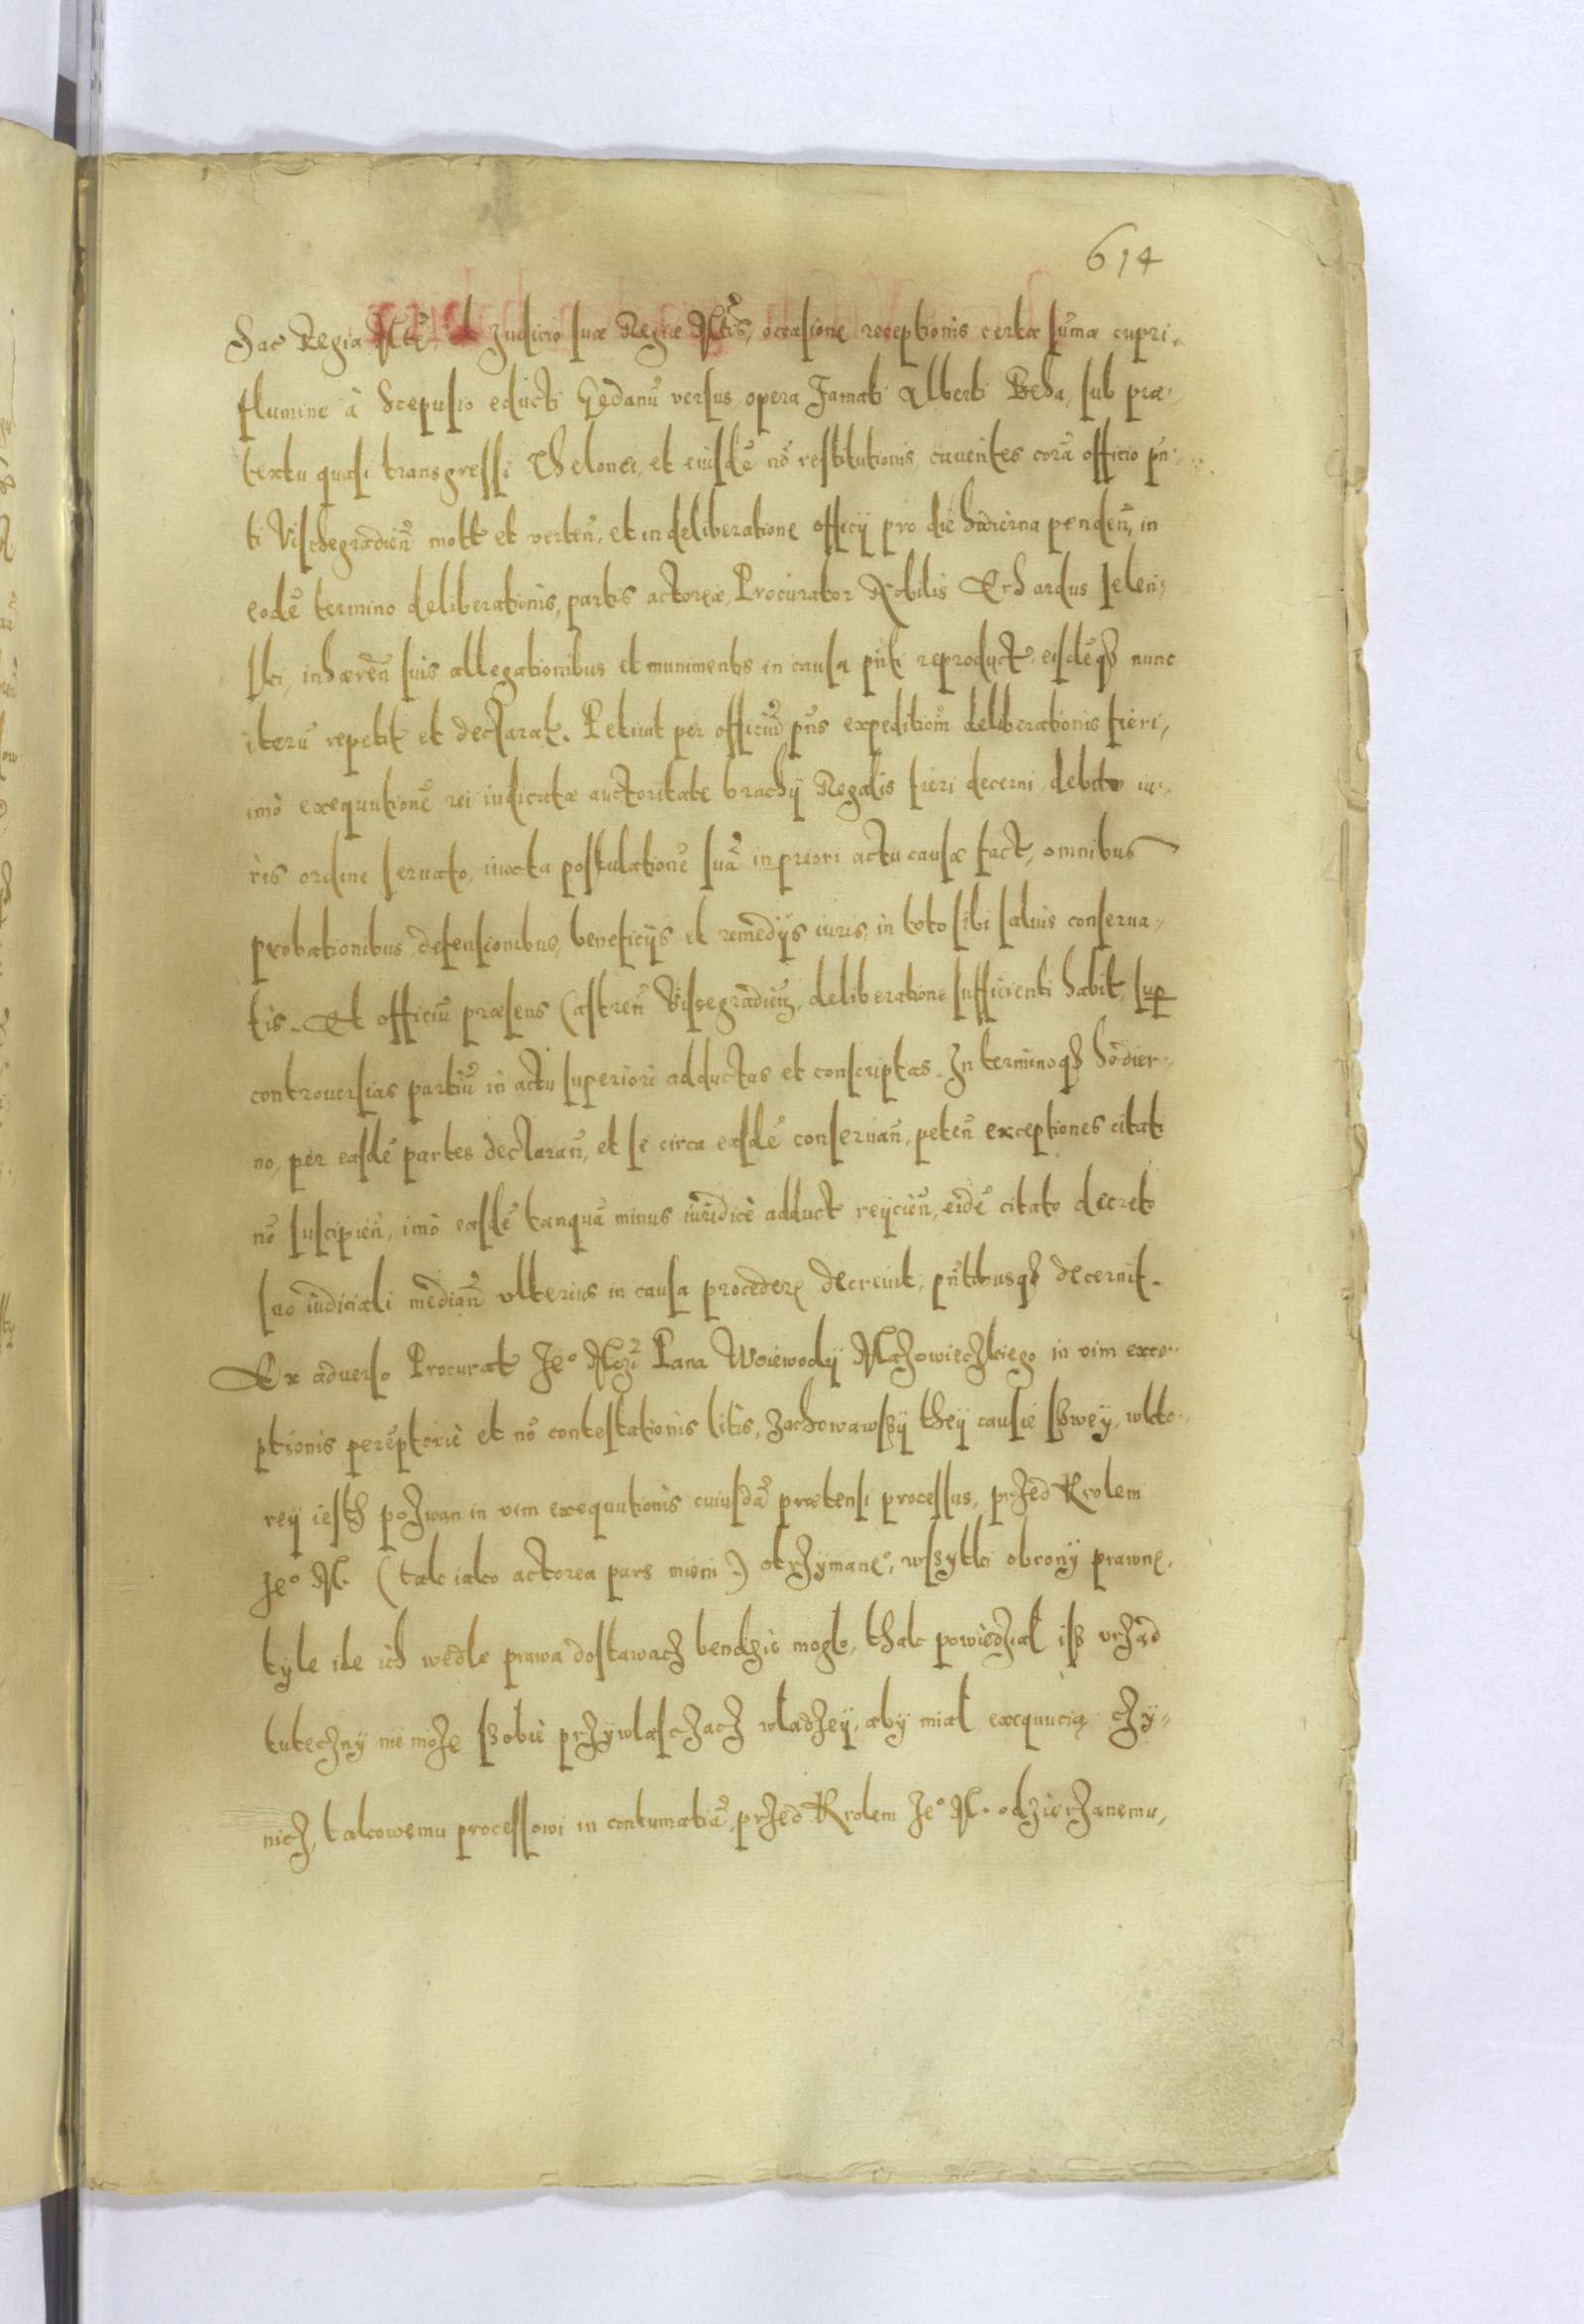 614
Sac Regia Mtē, et Judicio suæ Regiæ Mtis, occasione receptionis certæ sumæ cupri,
flumine à Scepusio educti Gedanū versus, opera Famati Alberti Beha, sub præ-
textu quasi transgressi Thelonei, et eiusdē nō restitutionis, cauentes corā officio pñ-
ti Vischegradieñ mott et verteñ, et in deliberatione officij pro die hodierna pendeñ, in
eodē termino deliberationis, partis actoreæ Procurator Nobilis Erhardus Jelen-
ski, inhæreñ suis allegationibus et munimentis in causa pñti reproduct, eisdēqȝ nunc
iterū repetit et declarat. Petiuit per officiū pñs expeditiom deliberationis fieri,
imò exequutionē rei iudicatæ auctoritate brachij Regalis fieri decerni, debito iu-
ris ordine seruato, iuxta postulationē suā in priori actu causæ fact, omnibus
probationibus, defensionibus, beneficijs et remedijs iuris, in toto sibi saluis conserua-
tis. Et officiū præsens Castreñ Vissegradieñ, deliberatione sufficienti habit, sup
controuersias partiū in actu superiori adductas et conscriptas. In terminoqȝ hodier-
no, per easdē partes declarañ, et se circa easdē conseruañ, peteñ exceptiones citati
nō suscipieñ, imò easdē tanquā minus iuridicè adduct reijcieñ, eidē citato decreto
suo iudiciali mediañ vlterius in causa procedere decreuit, pñtibusqȝ decernit.
Ex aduerso Procurat Je° Mczi Pana Woiewody Mazowieczkiego in vim exce-
ptionis perēptoriè et nō contestationis litis, zachowawszy they causie szwey, wkto-
rey iesth pozwan in vim exequutionis cuiusdā prætensi processus, przed Krolem
Je° M. (tak iako actorea pars mieni) otrzymane°, wszytki obrony prawne,
tyle ile ich wedle prawa dostawacz bendzie mogło, thak powiedział isz vrząd
tuteczny nie może szobie przywlasczacz władzey, aby miał exequucią czy-
nicz, takowemu processowi in contumatiā, przed Krolem Je° M. odzierzanemu,